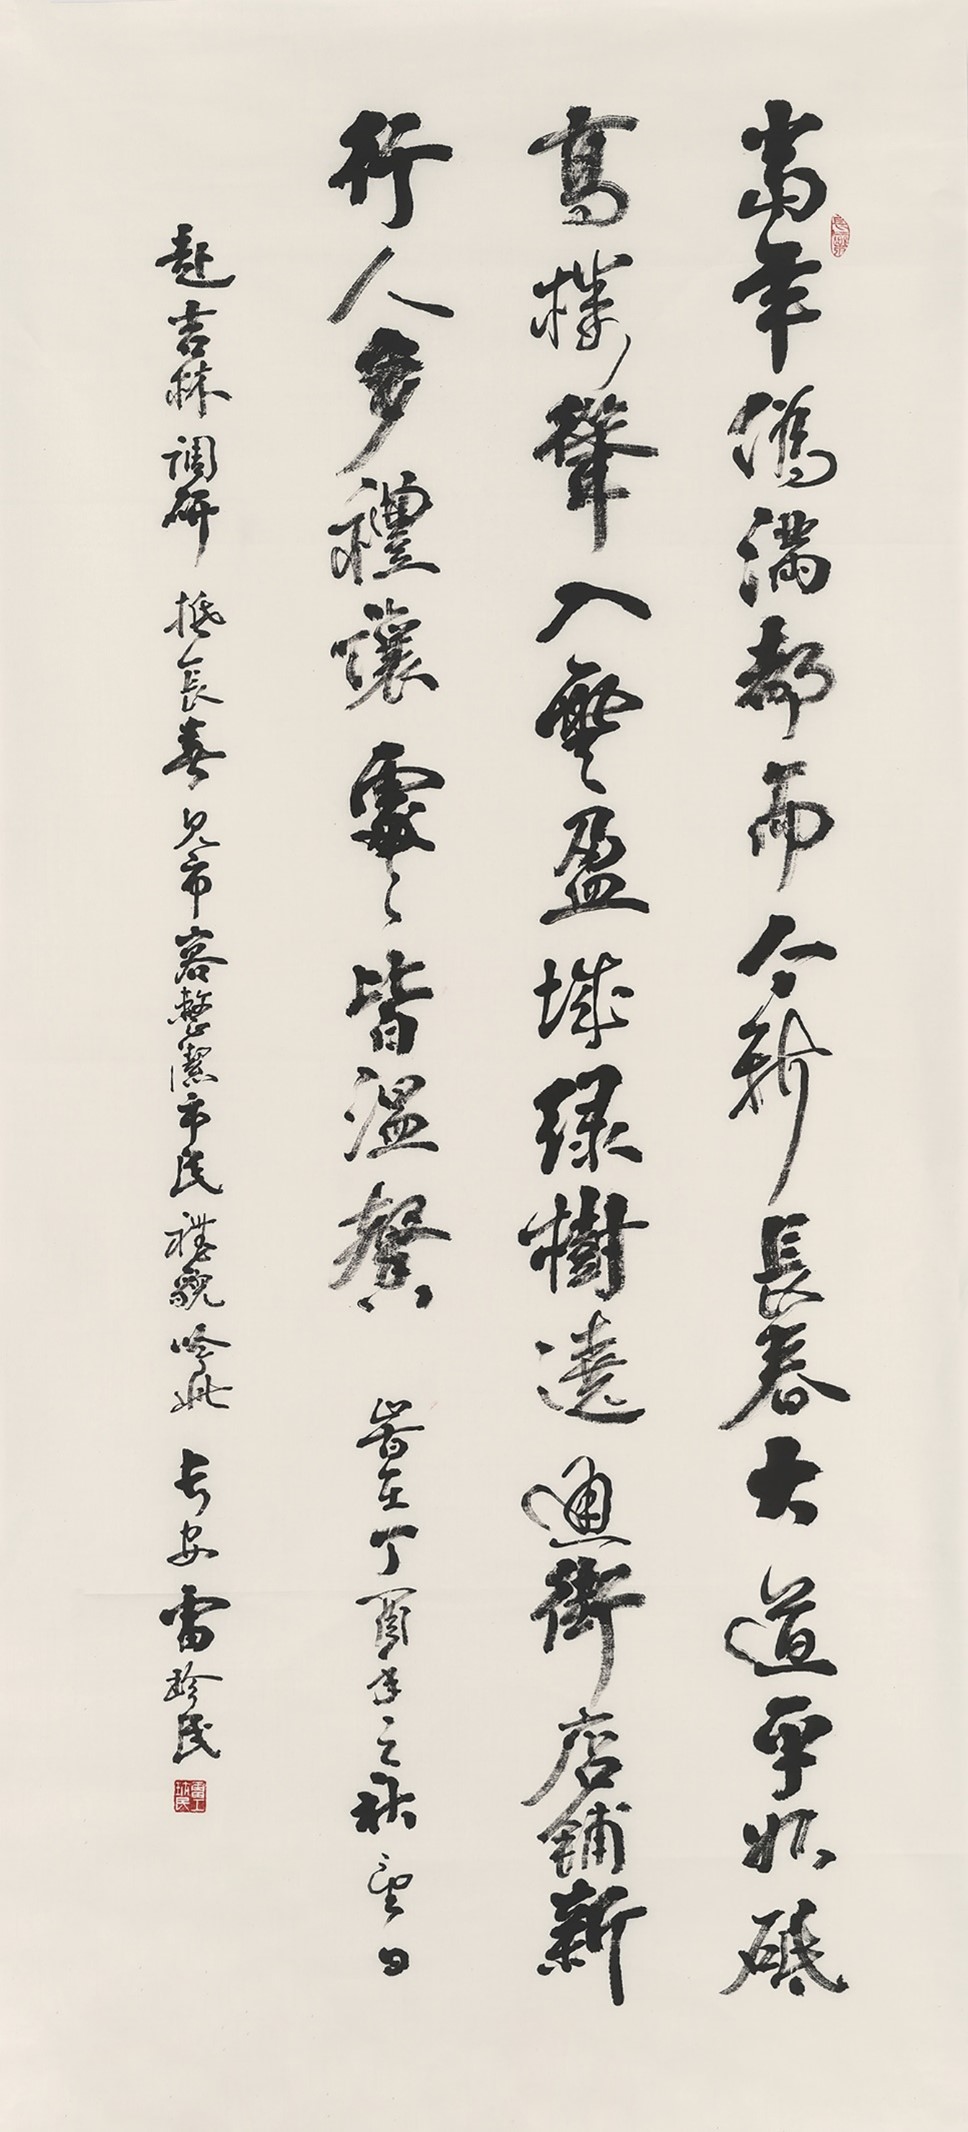 當年偽滿都而今新長春大道平如砥
高樓聳入雲盈城綠樹遶通街店鋪新
行人多禮讓處々皆溫馨 旹在丁酉年之秋望日
赴吉林調研抵長春見市容整潔市民禮貌吟此 長安雷珍民